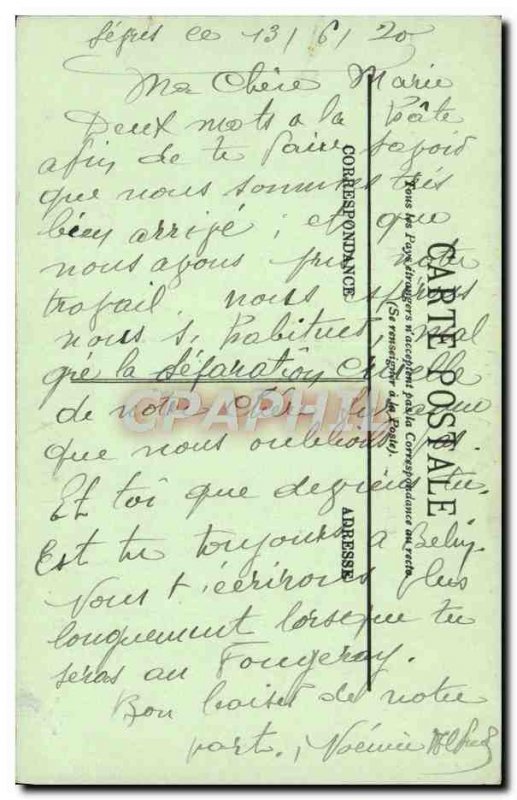 ce 13/6/20
Ma Chère Marie
Deux mots a la hâte
afin de te faire savoir
que nous sommes très
bien arrivé, et que
nous avons pris notre
travail. nous
nous habitues, mal
gré la séparation cruelle
de notre Chère
que nous oublions pas.
Et toi que devien tu.
Est tu toujours a
Nous t'écrirons plus
longuement lorsque tu
seras au Fougeray.
Bon baiser de notre
part. Noémie
CARTE POSTALE
Tous les Pays étrangers n'acceptent pas la Correspondance au recto
(Se renseigner à la Poste).
CORRESPONDANCE
ADRESSE
CPAPHIL